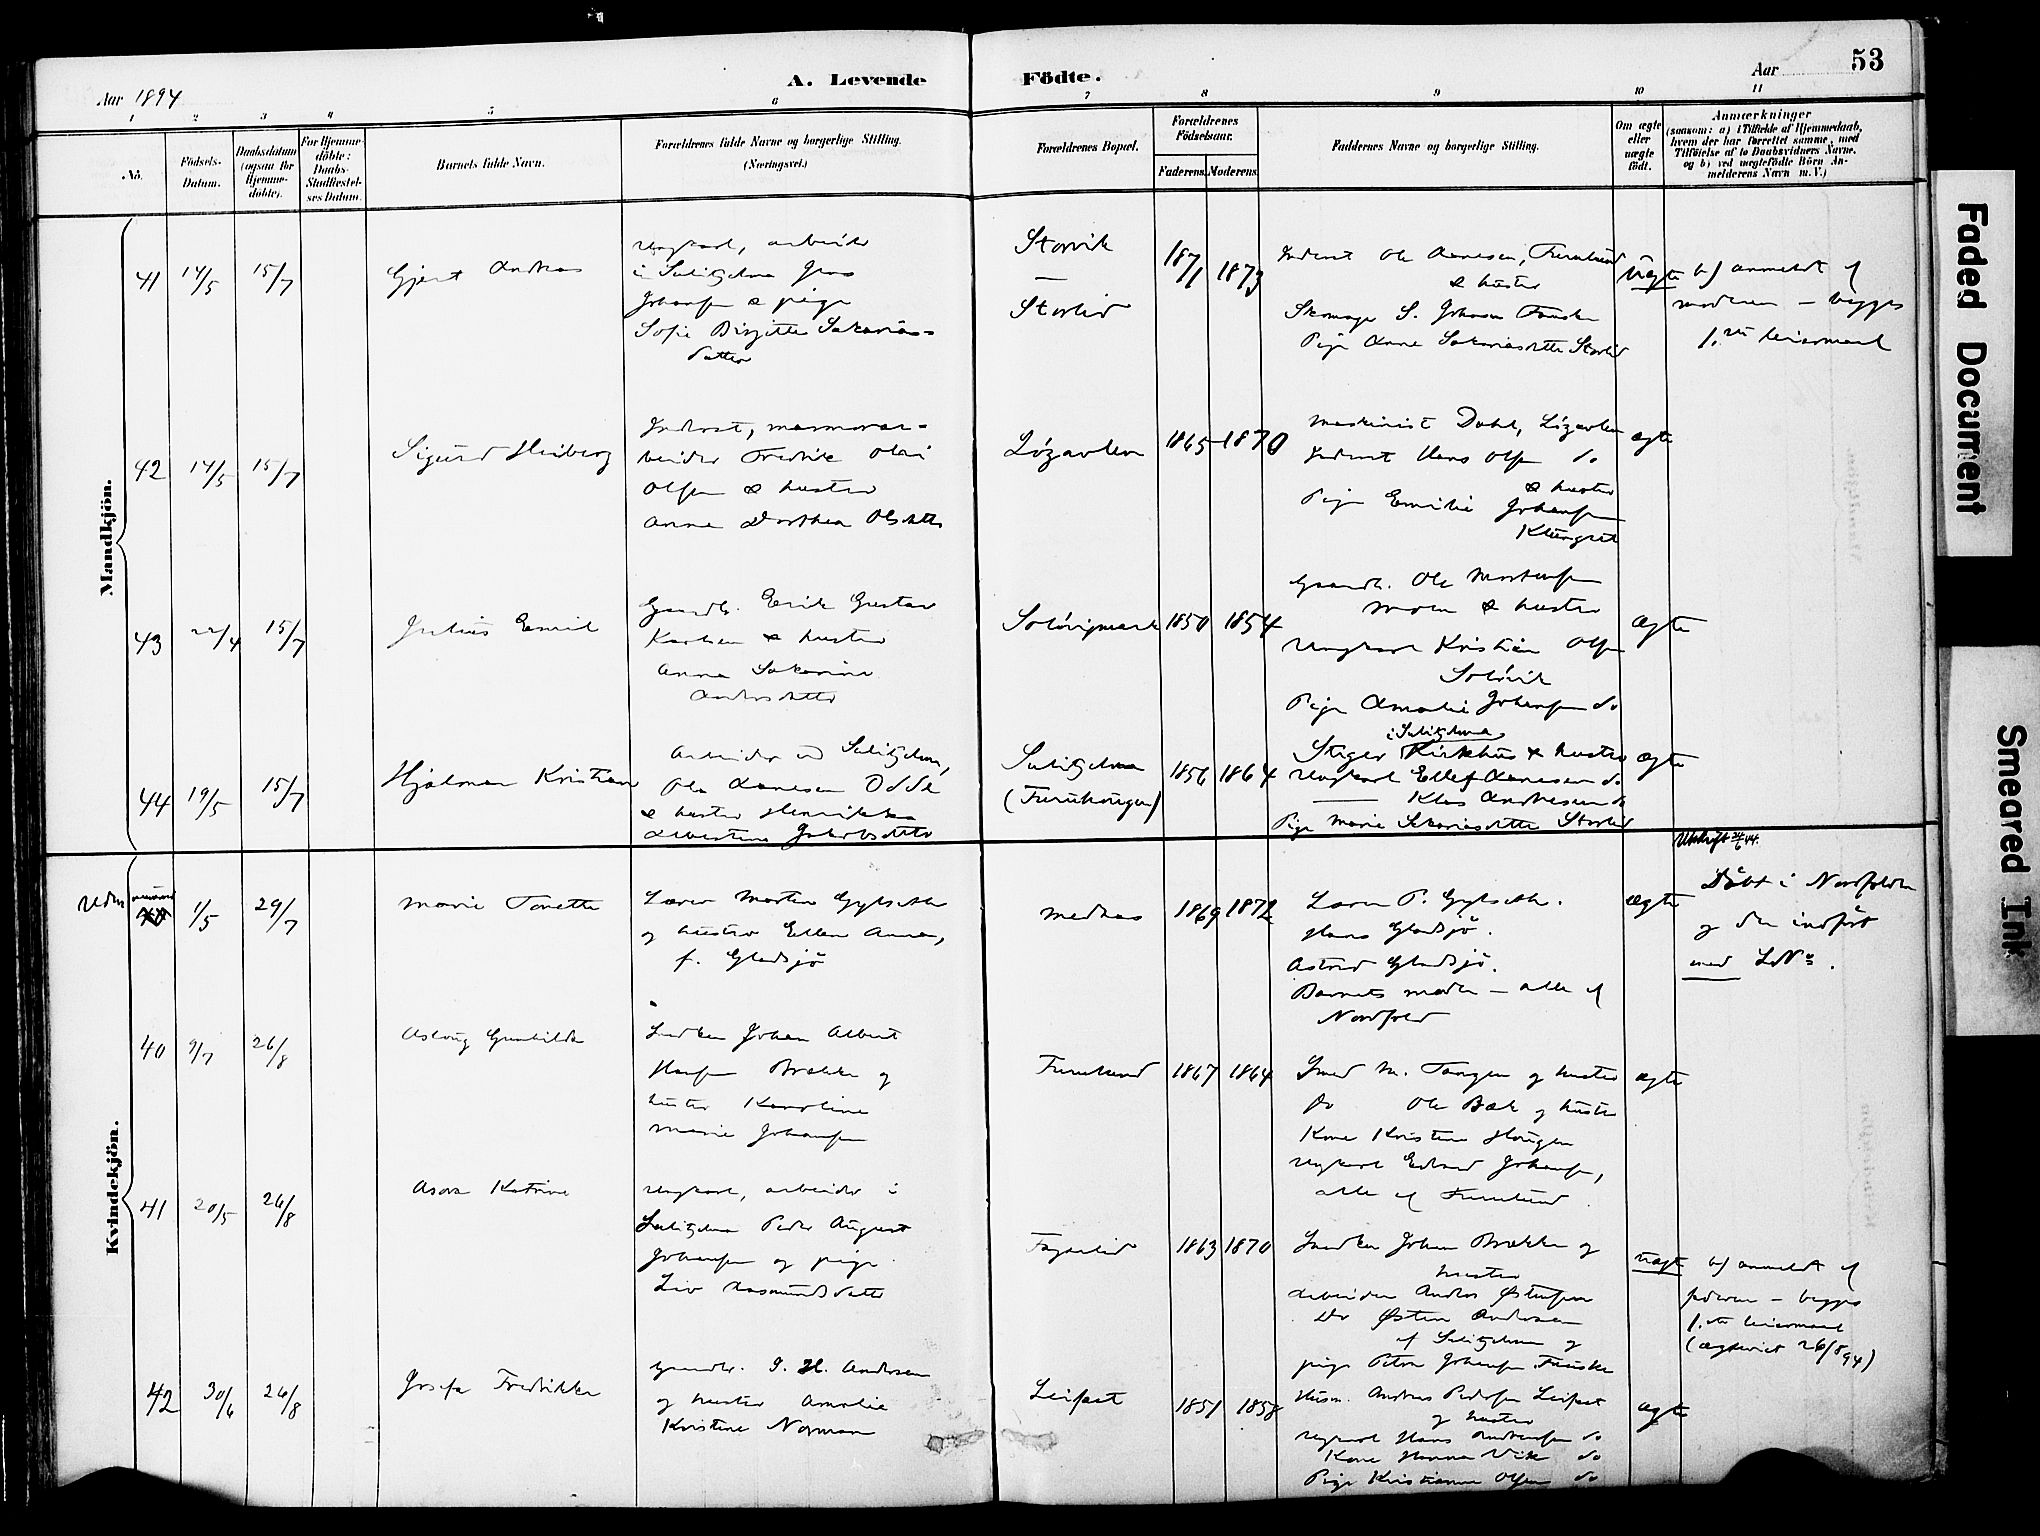 53
A. Levende Födte.
Aar 1894
Aar
1 2 3 4 5 6 7 8 9 10 11
No.
Födsels-
Datum.
Daabsdatum
(ogsaa for
Hjemme-
döbte).
For Hjemme-
döbte:
Daabs-
Stadfæstel-
ses Datum.
Barnets fulde Navn.
Forældrenes fulde Navne og borgerlige Stilling.
(Næringsvei.)
Forældrenes Bopæl.
Forældrenes
Födselsaar.
Faderens. Moderens.
Faddernes Navne og borgerlige Stilling.
Om ægte
eller
uægte
födt.
Anmærkninger
(saasom: a) i Tilfælde af Hjemmedaab,
hvem der har forrettet samme, med
Tilföielse af to Daabsvidners Navne,
og b) ved uægtefödte Börn An-
melderens Navn m. V.)
Mandkjön.
41 14/5 15/7
Gjert Andreas
Ungkarl, arbeider
i Sulitjelma Jens
Johansen & pige
Sofie Birgitte Sakarias-
datter
Storvik
—
Storlid
1871 1873
Inderst Ole Aanesen, Furulund
& hustru
Skomager S. Johansen Fauske
Pige Anne Sakariasdatter Storlid
Uægte
b) anmeldt af
moderen – begges
1.ste leiermaal
42 14/5 15/7
Sigurd Heiberg
Inderst, marmorar-
beider Fredrik Olai
Olsen & hustru
Anne Dorthea Olsdatter
Løgavlen
1865 1870
Maskinist Dahl, Løgavlen
Inderst Hans Olsen do
& hustru
Pige Emilie Johansen
Klungset
ægte
43 22/4 15/7
Julius Emil
Gaardb. Erik Gustav
Karlsen & hustru
Anna Sakarine
Andersdatter
1850 1854
Gaardb. Ole Mortensen
Moen & hustru
Ungkarl Kristian Olsen
Solóvik
Pige Amalie Johansen do
ægte
44 19/5 15/7
Hjalmar Kristian
Arbeider ved Sulitjelma,
Ole Aanesen Odde
& hustru Henrikke
Albertine Jakobsdatter
Sulitjelma
(Furuhaugen)
1856 1864
i Sulitjelma
Stiger Kirkhus & hustru
Ungkarl Ellef Aanesen do
— Klas Andresen do
Pige Marie Sakariasdatter Storlid
ægte
Kvindekjön.
Uden nummer 1/5 29/7
Marie Tonette
Lærer Morten Gylseth
og hustru Ellen Anna,
f. Gladsjö
Medaas
1869 1872
Lærer P. Gylseth.
Hans Gladsjö.
Astrid Gladsjö.
Barnets moder – alle af
Nordfold
ægte
Utskrift 24/6 44.
Döbt i Nordfolden
og der indfört
med LNo.
40 9/7 26/8
Aslaug Gunhilda
Snedker Johan Albert
Hansen Brække og
hustru Karoline
Marie Johansen
Furulund
1867 1864
Smed M. Tangen og hustru
Do Ole Bæk og hustru
Kone Kristine Haugen
Ungkarl Edvard Johansen,
alle af Furulund.
ægte
41 20/5 26/8
Asora Katrine
Ungkarl, arbeider i
Sulitjelma Peder August
Johansen og pige
Liv Aasmundsdatter
Fagerlid
1863 1870
Snedker Johan Brække og
hustru
Arbeider Anders Østensen
Do Østen Andersen
af Sulitjelma og
pige Petra Johansen Fauske
uægte
b) anmeldt af
faderen – begges
1.ste leiermaal
(ægteviet 26/8 94)
42 30/6 26/8
Josefa Fredrikke
Gaardbr. I. H. Andersen
og hustru Amalie
Kristine Norman
Leifset
1851 1858
Husm. Andreas Pedersen Leifset
og hustru
Ungkarl Hans Andersen do
Kone Hanna Vik do
Pige Kristianne Olsen do
ægte
Faded Document
Smeared Ink